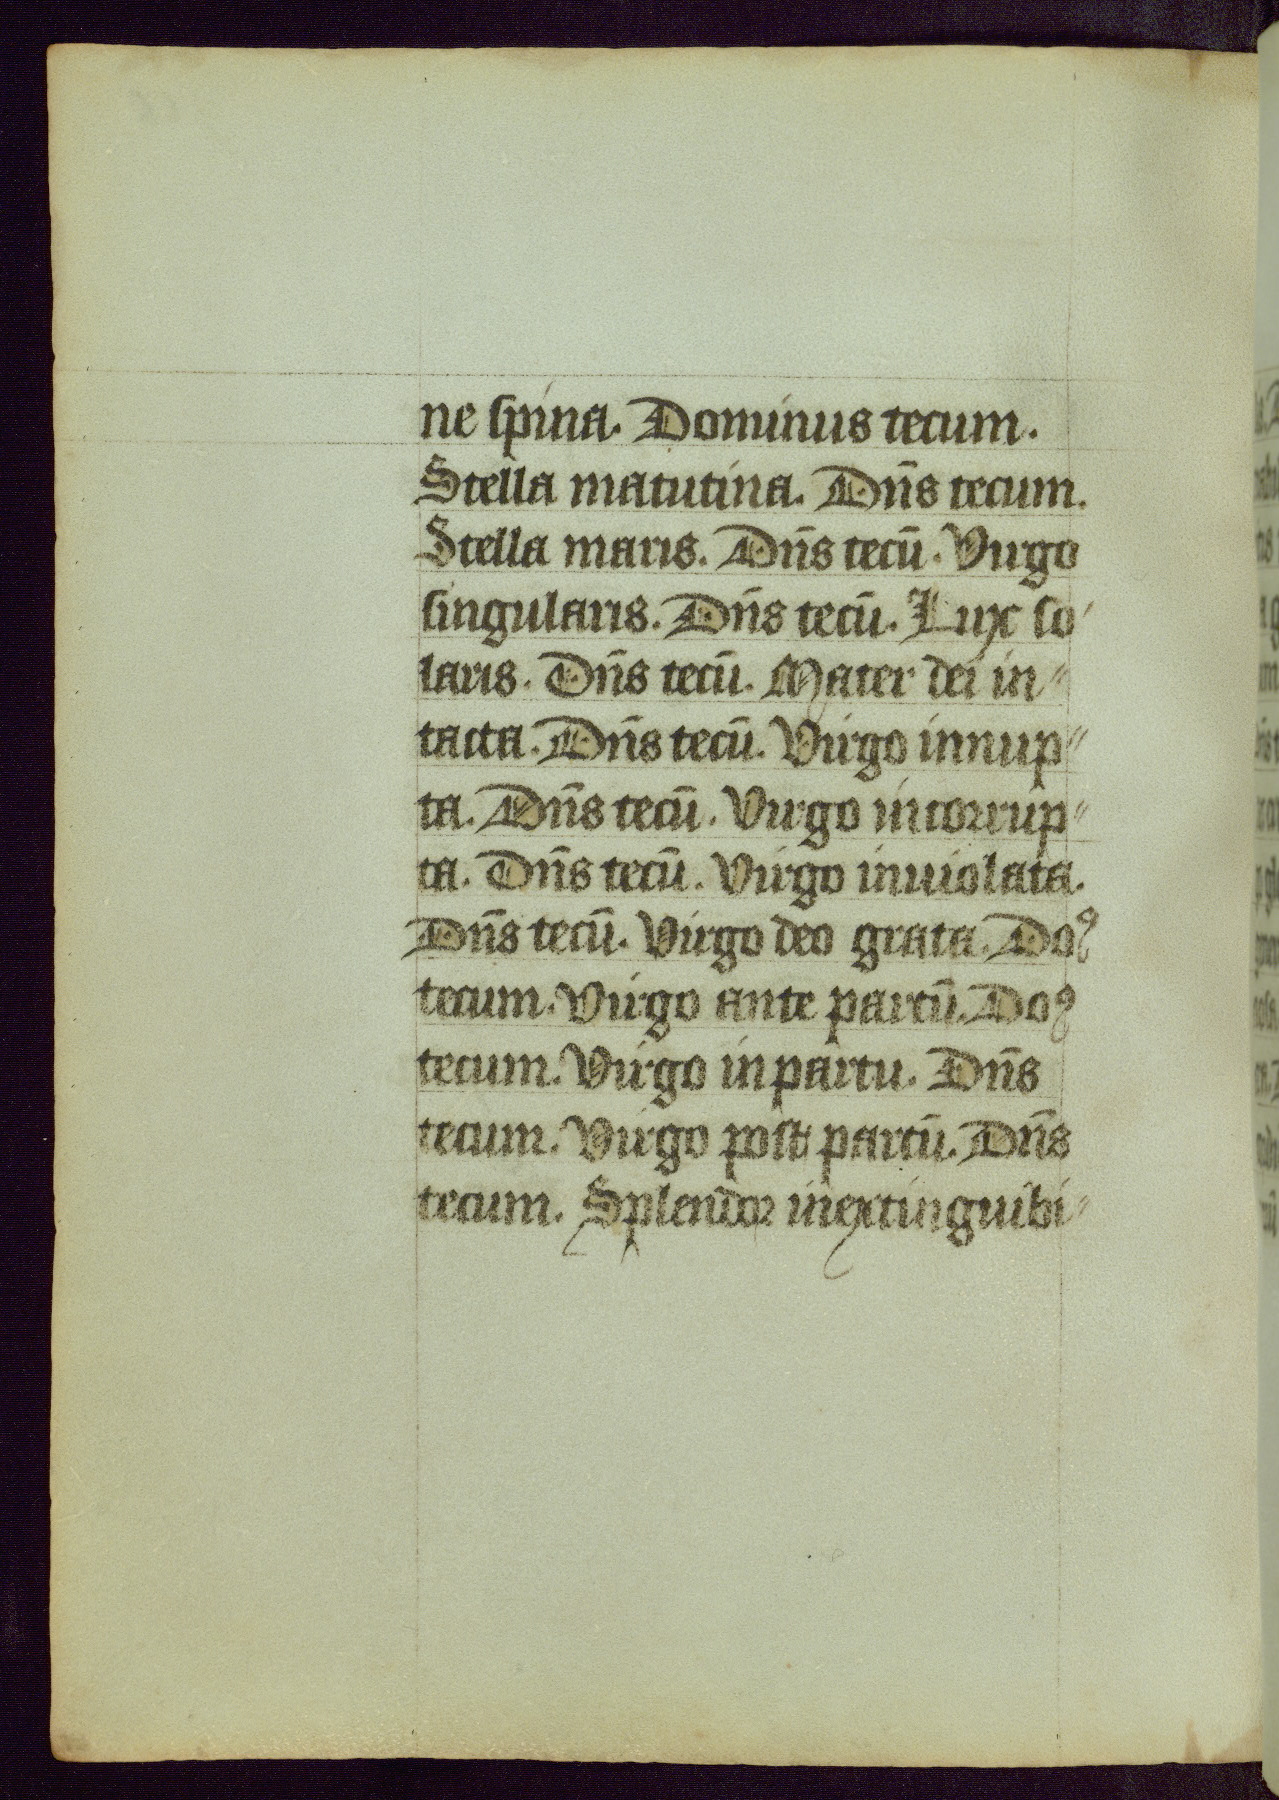 ne spina. Dominus tecum.
Stella matutina. Dn̄s tecum.
Stella maris. Dn̄s tecū. Virgo
singularis. Dn̄s tecū. Lux so
laris. Dn̄s tecū. Mater dei in-
tacta. Dn̄s tecū. Virgo innup-
ta. Dn̄s tecū. Virgo incorrup-
ta. Dn̄s tecū. Virgo inuiolata.
Dn̄s tecū. Virgo deo grata. Doꝰ
tecum. Virgo ante partū. Doꝰ
tecum. Virgo in partu. Dn̄s
tecum. Virgo post partū. Dn̄s
tecum. Splendor inextinguibi-